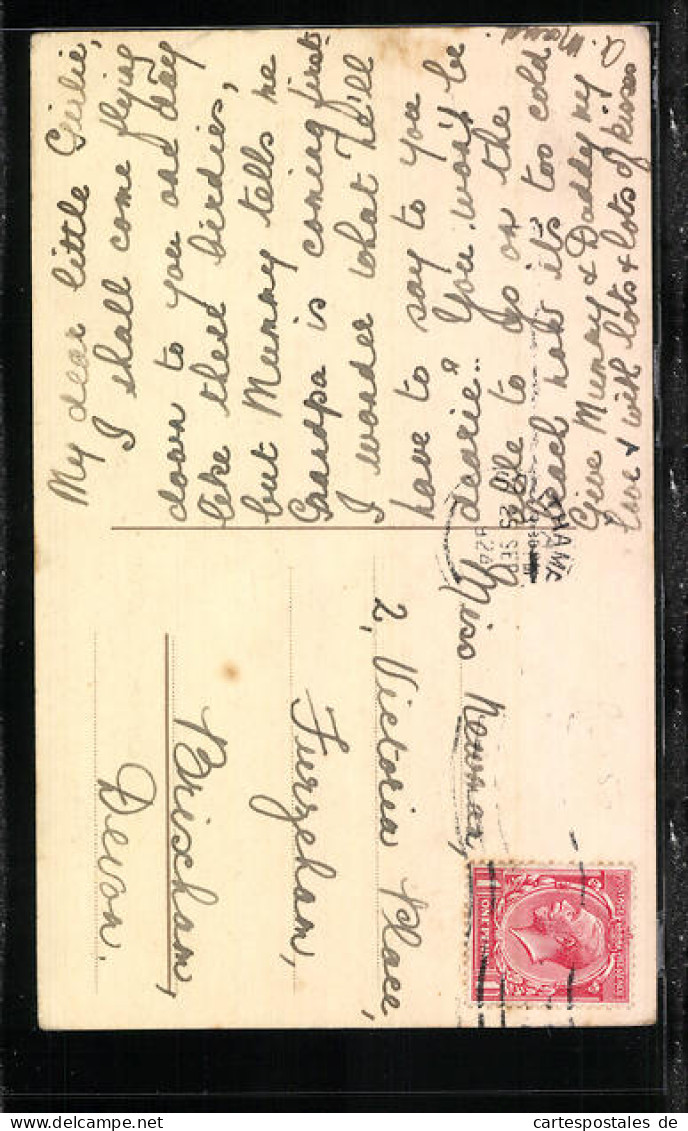 My dear little Girlie,
I shall come flying
down to you one day
like these birdies,
but Mummy tells me
Grandpa is coming first.
I wonder what he'll
have to say to you
dearie? You won't be
able to go on the
beach now its too cold.
Give Mummy & Daddy my
love & with lots & lots of kisses
A. Maud.
Miss Newman,
2, Victoria Place,
Furzeham,
Brixham,
Devon.
25 SEP
ONE PENNY
cartespostales de